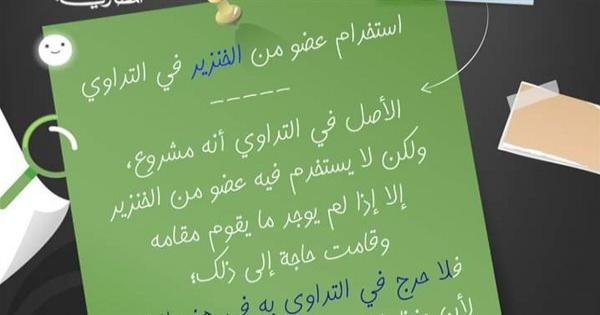 استخدام عضو من الخنزير في التداوي
-----
الأصل في التداوي أنه مشروع،
ولكن لا يستخدم فيه عضو من الخنزير
إلا إذا لم يوجد ما يقوم مقامه
وقامت حاجة إلى ذلك؛
فلا حرج في التداوي به في
لأن